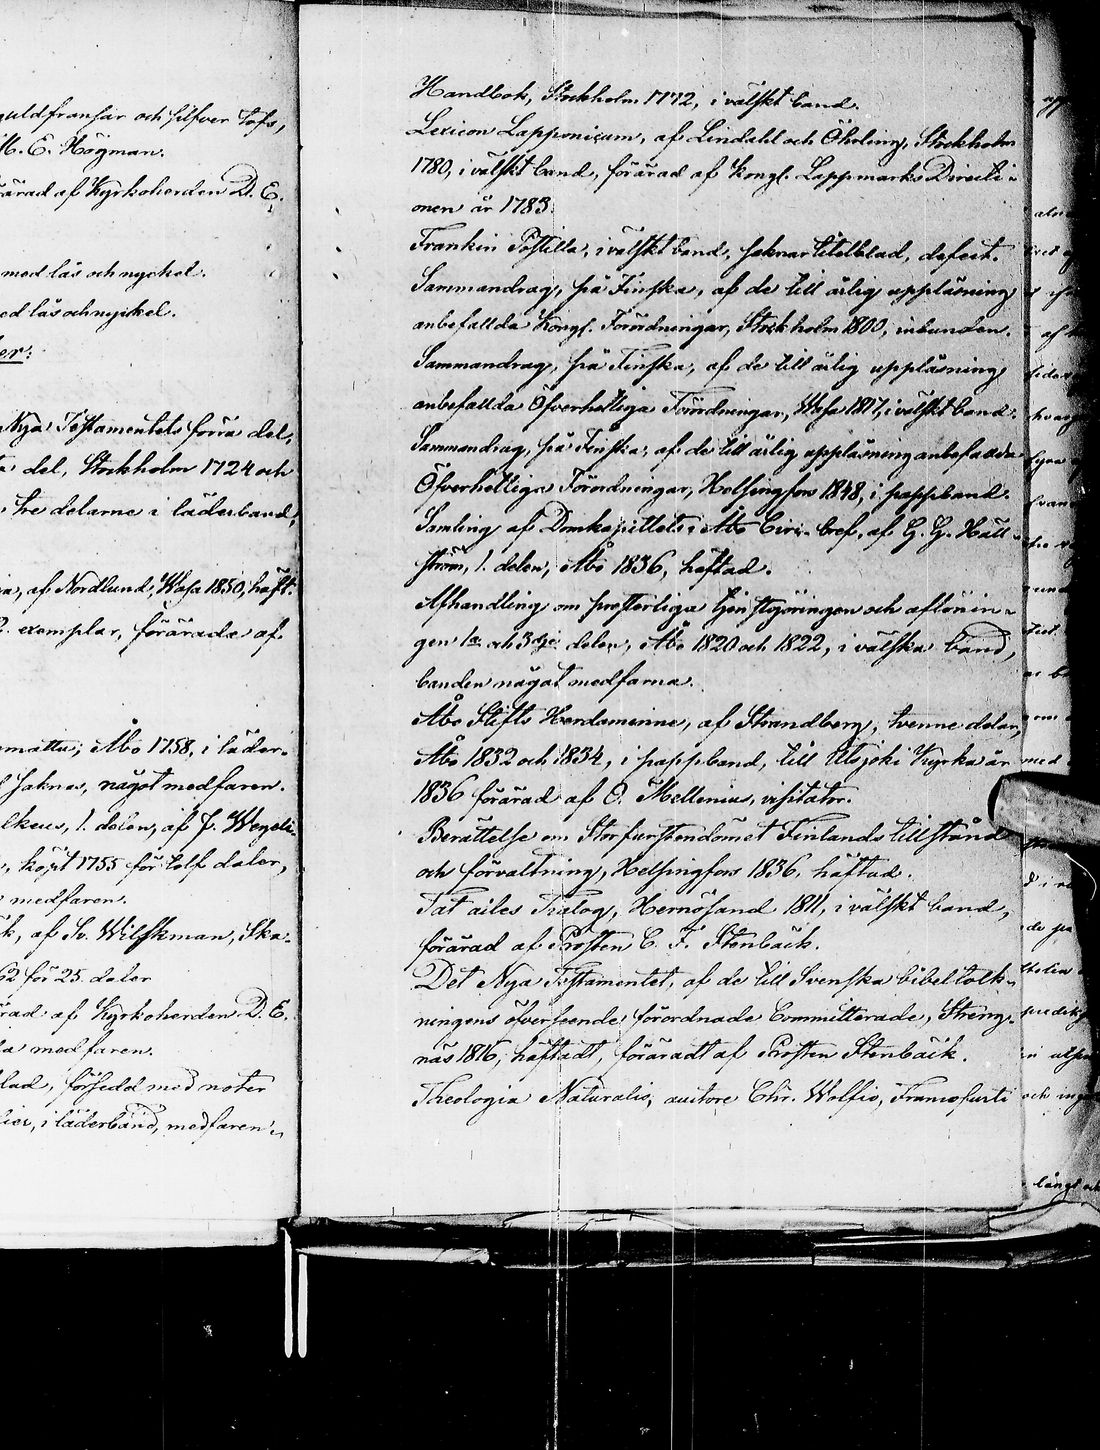 guldfransar och silfver tofs,
M. E. Högman.
ärad af Kyrkoherden D. E.
med lås och nyckel.
ed lås och nyckel.
er:
Nya Testamentets förra del,
del, Stockholm 1724 och
tre delarne i läderband,
af Nordlund, Wasa 1850, häft.
exemplar, förärade af
Åbo 1758, i läder-
saknas, något medfaren.
1. delen, af J. Wegeli-
köpt 1755 för tolf daler,
medfaren.
k, af Sv. Wilskman, Ska-
62 för 25 daler
rad af Kyrkoherden D. E.
la medfaren.
lad, försedd med noter
i läderband, medfaren.
Handbok, Stockholm 1772, i välskt band.
Lexicon Lapponicum, af Lindahl och Öhrling, Stockholm
1780, i välskt band, förärad af Kongl. Lappmarks Directi-
onen år 1783.
Frankin Postilla, i välskt band, saknar titelblad, defect.
Sammandrag, på Finska, af de till årlig uppläsning
anbefallda Kongl. Förordningar, Stockholm 1800, inbunden.
Sammandrag, på Finska, af de till årlig uppläsning
anbefallda Öfverhetliga Förordningar, Wasa 1817, i välskt band.
Sammandrag, på Finska, af de till årlig uppläsning anbefallda
Öfverhetliga Förordningar, Helsingfors 1848, i pappband.
Samling af Domkapitlets i Åbo Circ. bref, af G. G. Häll-
ström, 1. delen, Åbo 1836, häftad.
Afhandling om presterliga tjenstgöringen och aflönin-
gen 1a och 3dje delen, Åbo 1820 och 1822, i välska band,
banden något medfarna.
Åbo Stifts Herdaminne, af Strandberg, tvenne delar,
Åbo 1832 och 1834, i pappband, till Utsjoki Kyrka år
1836 förärad af O. Mellenius, visitator.
Berättelse om Storfurstendömet Finlands tillstånd
och förvaltning, Helsingfors 1836, häftad.
Tat ailes Tialog, Hernösand 1811, i välskt band,
förärad af Prosten C. F. Stenbäck.
Det Nya Testamentet, af de till Svenska bibeltolk-
ningens öfverseende förordnade Committerade, Streng-
näs 1816, häftadt, förärad t af Prosten Stenbäck.
Theologia Naturalis, auctore Chr. Wolfio, Francofurti